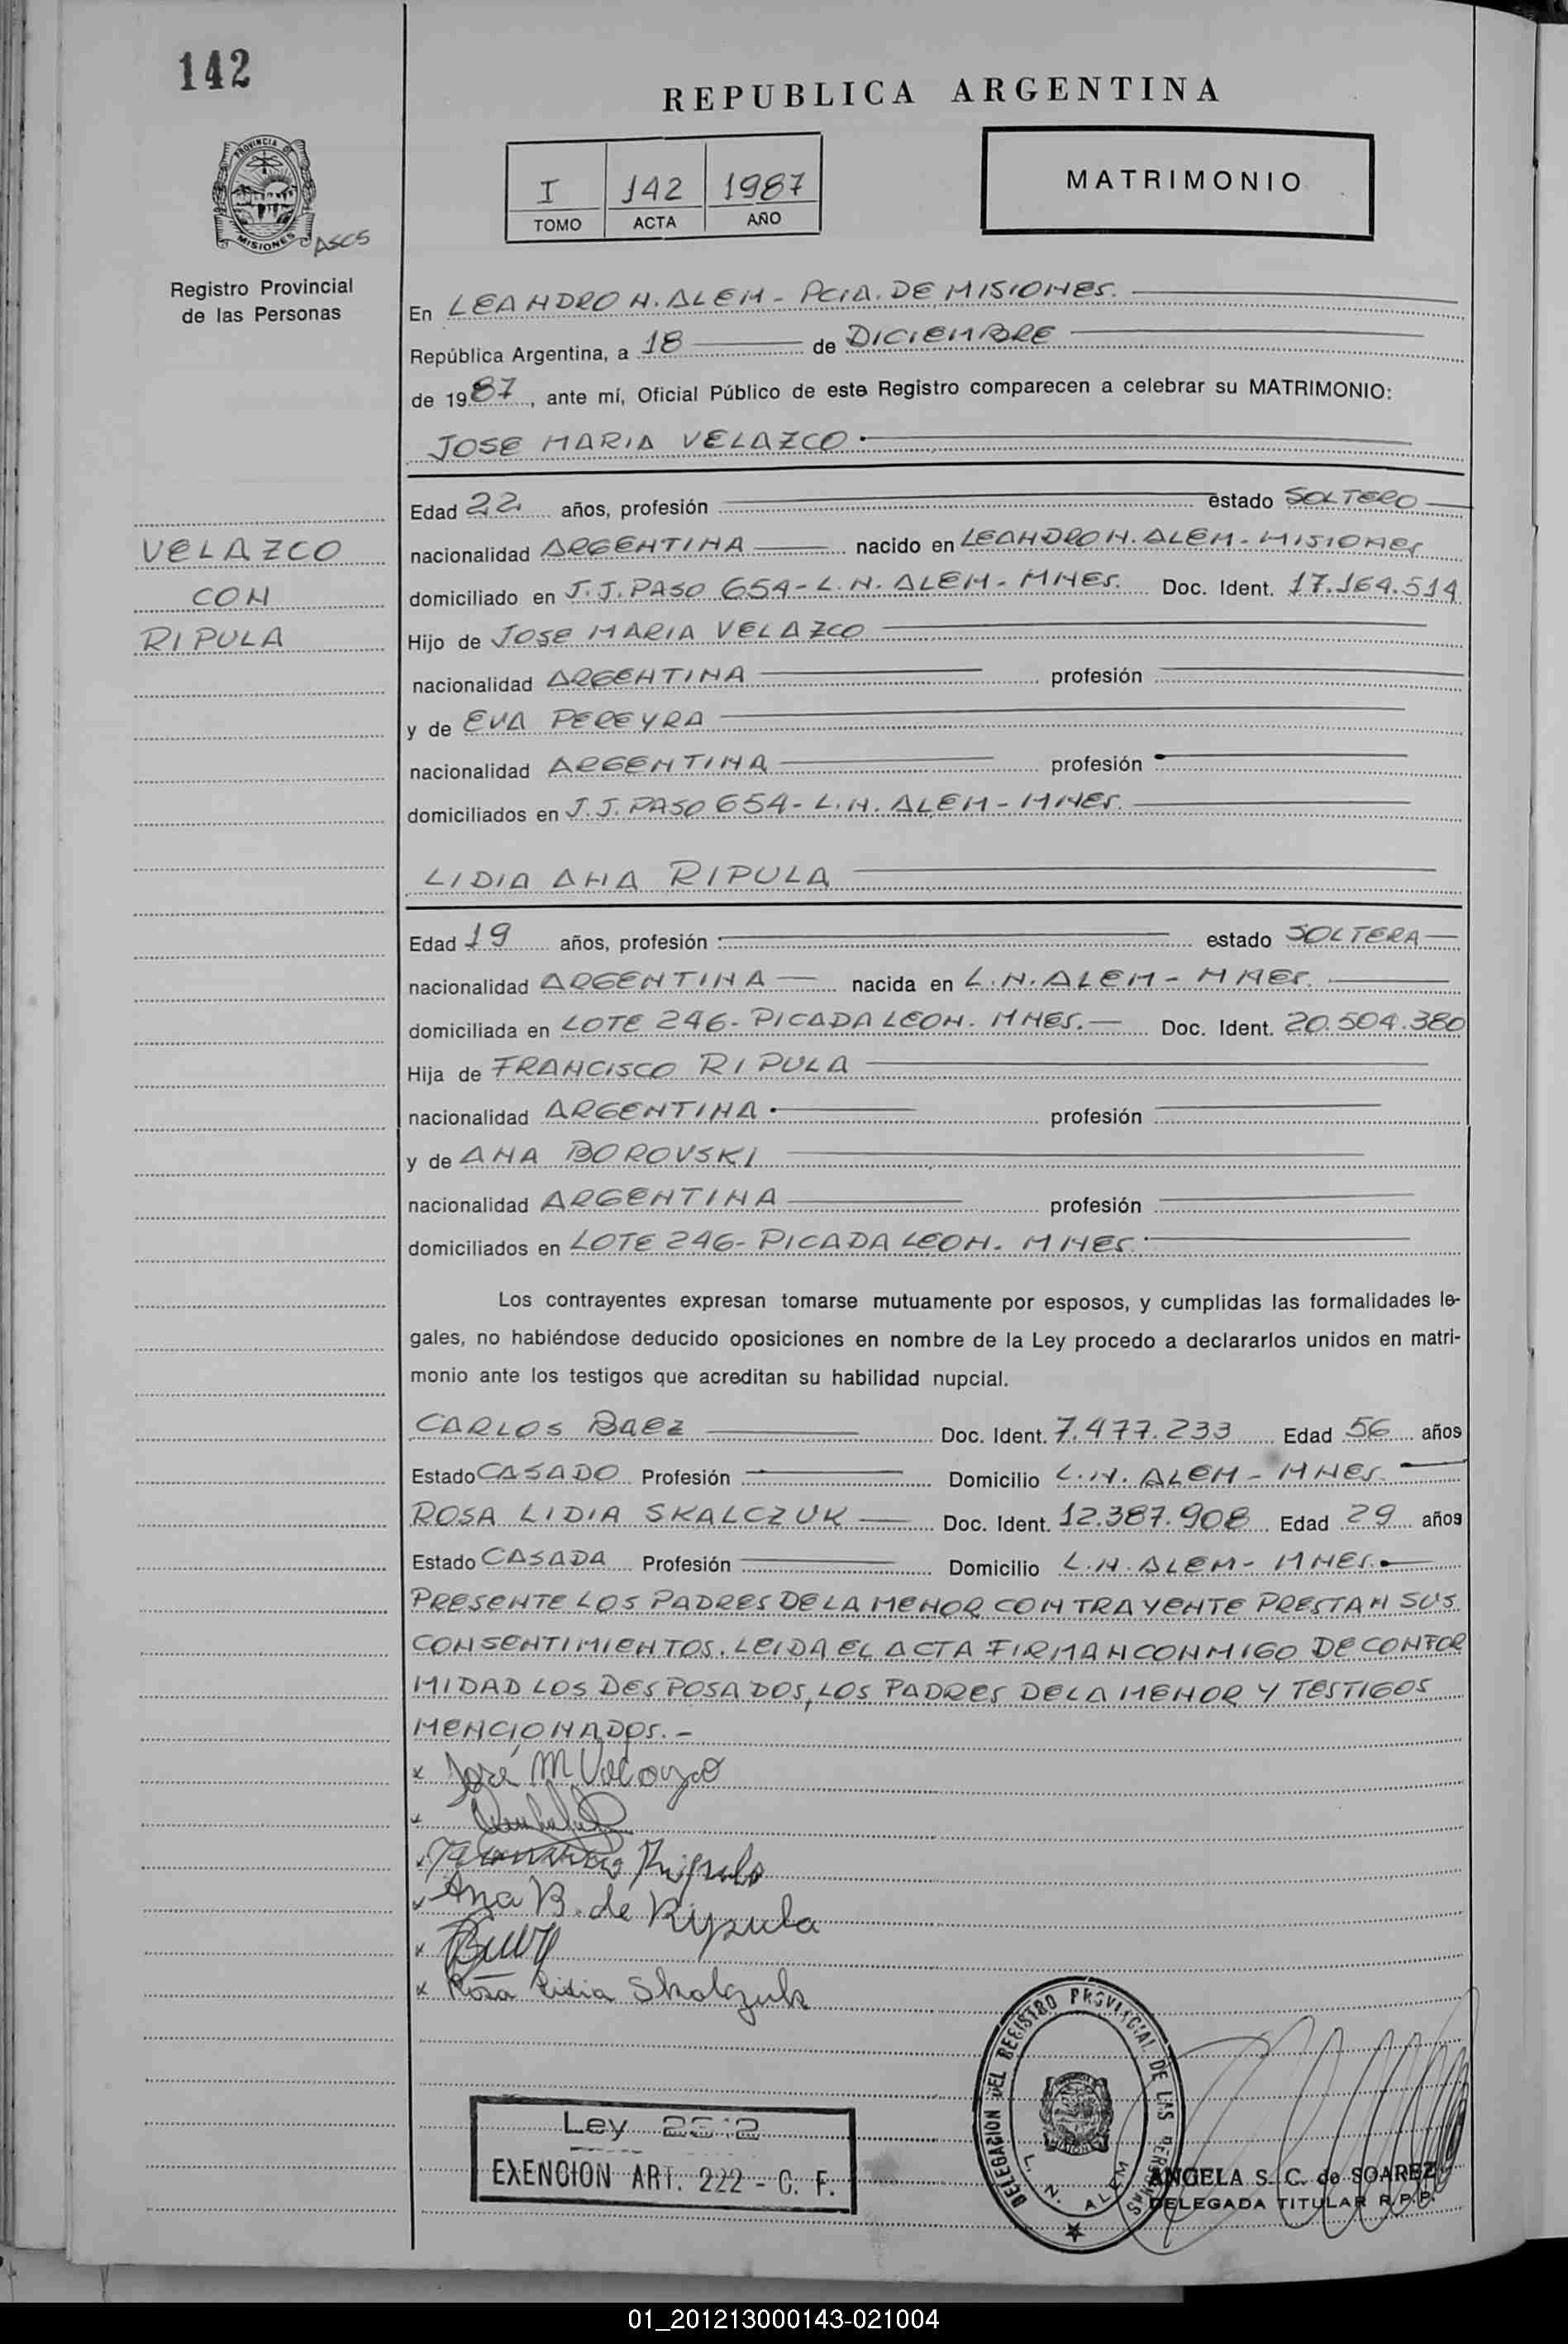 142
REPUBLICA ARGENTINA
I 142 1987
TOMO ACTA AÑO
MATRIMONIO
PROVINCIA DE
MISIONES
ASCS
Registro Provincial
de las Personas
En LEANDRO N. ALEM - PCIA. DE MISIONES.
República Argentina, a 18 de DICIEMBRE
de 1987, ante mí, Oficial Público de este Registro comparecen a celebrar su MATRIMONIO:
JOSE MARIA VELAZCO
Edad 22 años, profesión estado SOLTERO
VELAZCO
CON
RIPULA
nacionalidad ARGENTINA nacido en LEANDRO N. ALEM - MISIONES
domiciliado en J.J. PASO 654 - L.N. ALEM - MNES. Doc. Ident. 17.164.514
Hijo de JOSE MARIA VELAZCO
nacionalidad ARGENTINA profesión
y de EVA PEREYRA
nacionalidad ARGENTINA profesión
domiciliados en J.J. PASO 654 - L.N. ALEM - MNES.
LIDIA ANA RIPULA
Edad 19 años, profesión estado SOLTERA
nacionalidad ARGENTINA nacida en L.N. ALEM - MNES.
domiciliada en LOTE 246 - PICADA LEON. MNES. Doc. Ident. 20.504.380
Hija de FRANCISCO RIPULA
nacionalidad ARGENTINA profesión
y de ANA BOROVSKI
nacionalidad ARGENTINA profesión
domiciliados en LOTE 246 - PICADA LEON. MNES.
Los contrayentes expresan tomarse mutuamente por esposos, y cumplidas las formalidades le-
gales, no habiéndose deducido oposiciones en nombre de la Ley procedo a declararlos unidos en matri-
monio ante los testigos que acreditan su habilidad nupcial.
CARLOS BAEZ Doc. Ident. 7.477.233 Edad 56 años
Estado CASADO Profesión Domicilio L.N. ALEM - MNES.
ROSA LIDIA SKALCZUK Doc. Ident. 12.387.908 Edad 29 años
Estado CASADA Profesión Domicilio L.N. ALEM - MNES.
PRESENTE LOS PADRES DE LA MENOR CONTRAYENTE PRESTAN SUS
CONSENTIMIENTOS. LEIDA EL ACTA FIRMAN CONMIGO DE CONFOR
MIDAD LOS DESPOSADOS, LOS PADRES DE LA MENOR Y TESTIGOS
MENCIONADOS.-
x José M Velazco
x
x Ripula
x Ana B. de Ripula
x
x Rosa Lidia Skalczuk
DELEGACION DEL REGISTRO PROVINCIAL DE LAS PERSONAS
L. N. ALEM
Ley
EXENCION ART. 222 - C. F.
ANGELA S. C. de SOAREZ
DELEGADA TITULAR R.P.P.
01_201213000143-021004